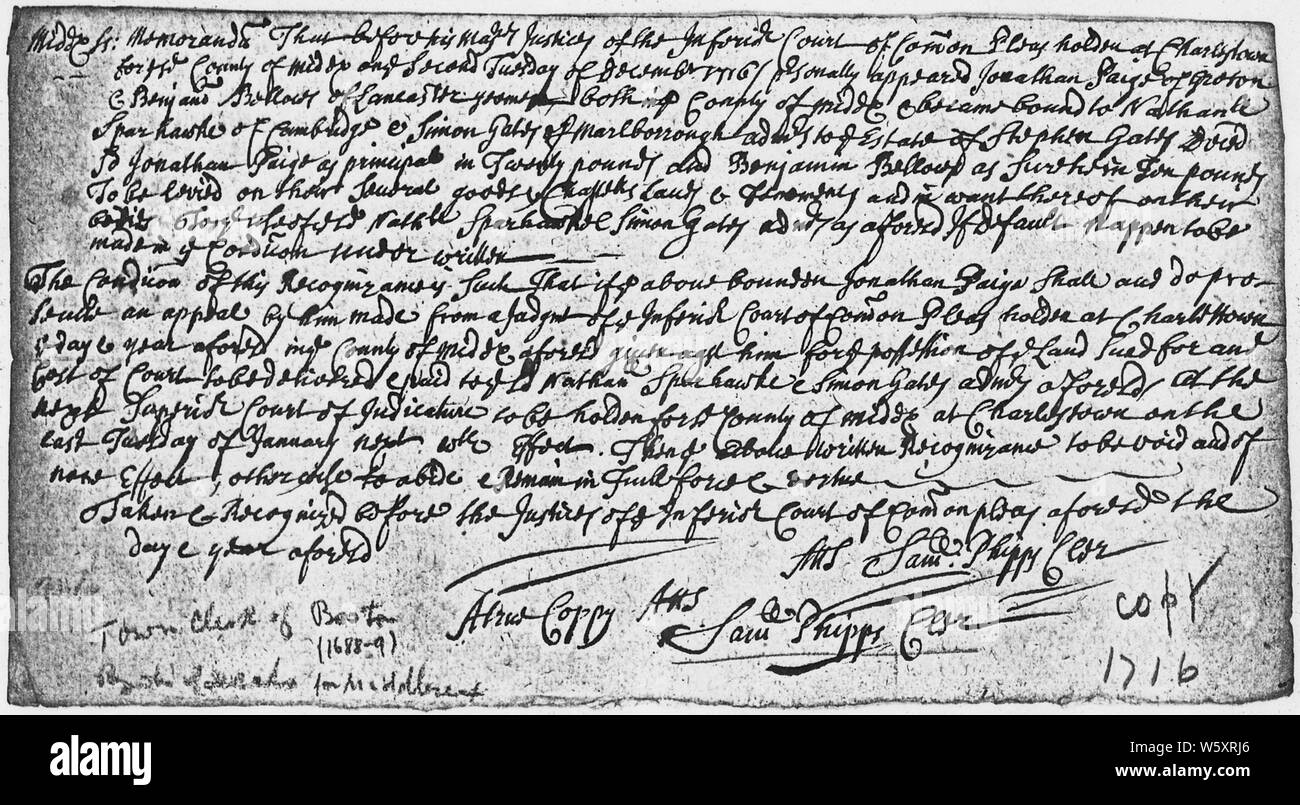 Middx ss: Memorandm That before his Majts Justices of the Inferir Court of Comon Pleas holden at Charlestown
for sd County of Middx and Second Tuesday of December 1716/ psonally appeared Jonathan Paige of Groton
& Benj and Bellows of Lancaster yeomen both in ye County of Middx & became bound to Nathanll
Sparhawke of Cambridge & Simon Gates of Marlborrough admrs to ye Estate of Stephen Gates Decd
Jonathan Paige as principal in Twenty pounds and Benjamin Bellows as Surtie in Ten pounds
To be levied on their Several goods & Chattels Lands & Tenements and in want thereof on their
bodies To ye use of ye sd Nathll Sparhawke & Simon Gates admrs as aforesd If default happen to be
made in ye Condicon under written
The Condicon of this Recognizance is Such That if ye above bounden Jonathan Paige Shall and do pro-
secute an appeal by him made from a Judgmt of ye Inferir Court of Comon Pleas holden at Charlestown
ye day & year aforesd in ye County of Middx aforesd given agst him for ye possession of ye Land Sued for and
Cost of Court to be delivered & paid to ye sd Nathan Sparhawke & Simon Gates admrs aforesd, At the
next Superir Court of Judicature to be holden for ye County of Middx at Charlestown on the
last Tuesday of January next wth Effect. Then ye above written Recognizance to be void and of
none Effect, otherwise to abide & Remain in Full force & vertue
Taken & Recognized before the Justices of ye Inferir Court of Comon pleas aforesd the
day & year aforesd
Atts Samll Phipps Cler
A true Coppy Atts Samll Phipps Cler
Copy
1716
Town Clerk of Boston
(1688-9)
for Middlesex
alamy
W5XRJ6
www.alamy.com